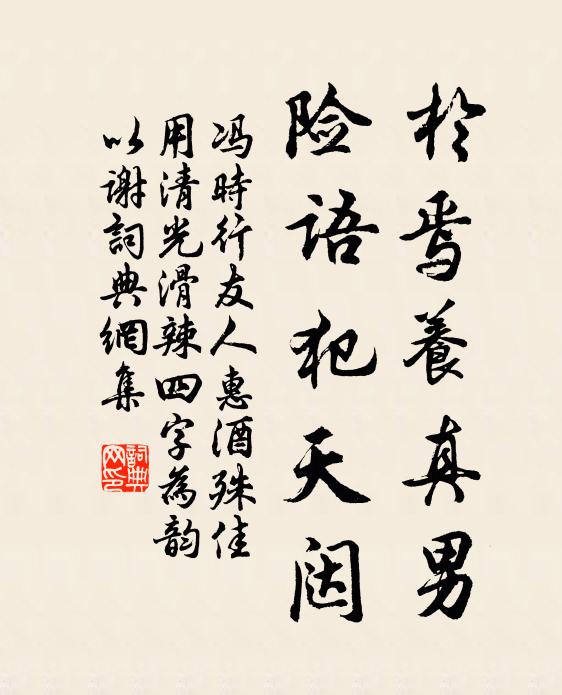 於焉養真男
险语犯天阔
冯時行友人惠酒殊佳
用清光滑辣四字為韵
以谢詞典網集
詞典网印